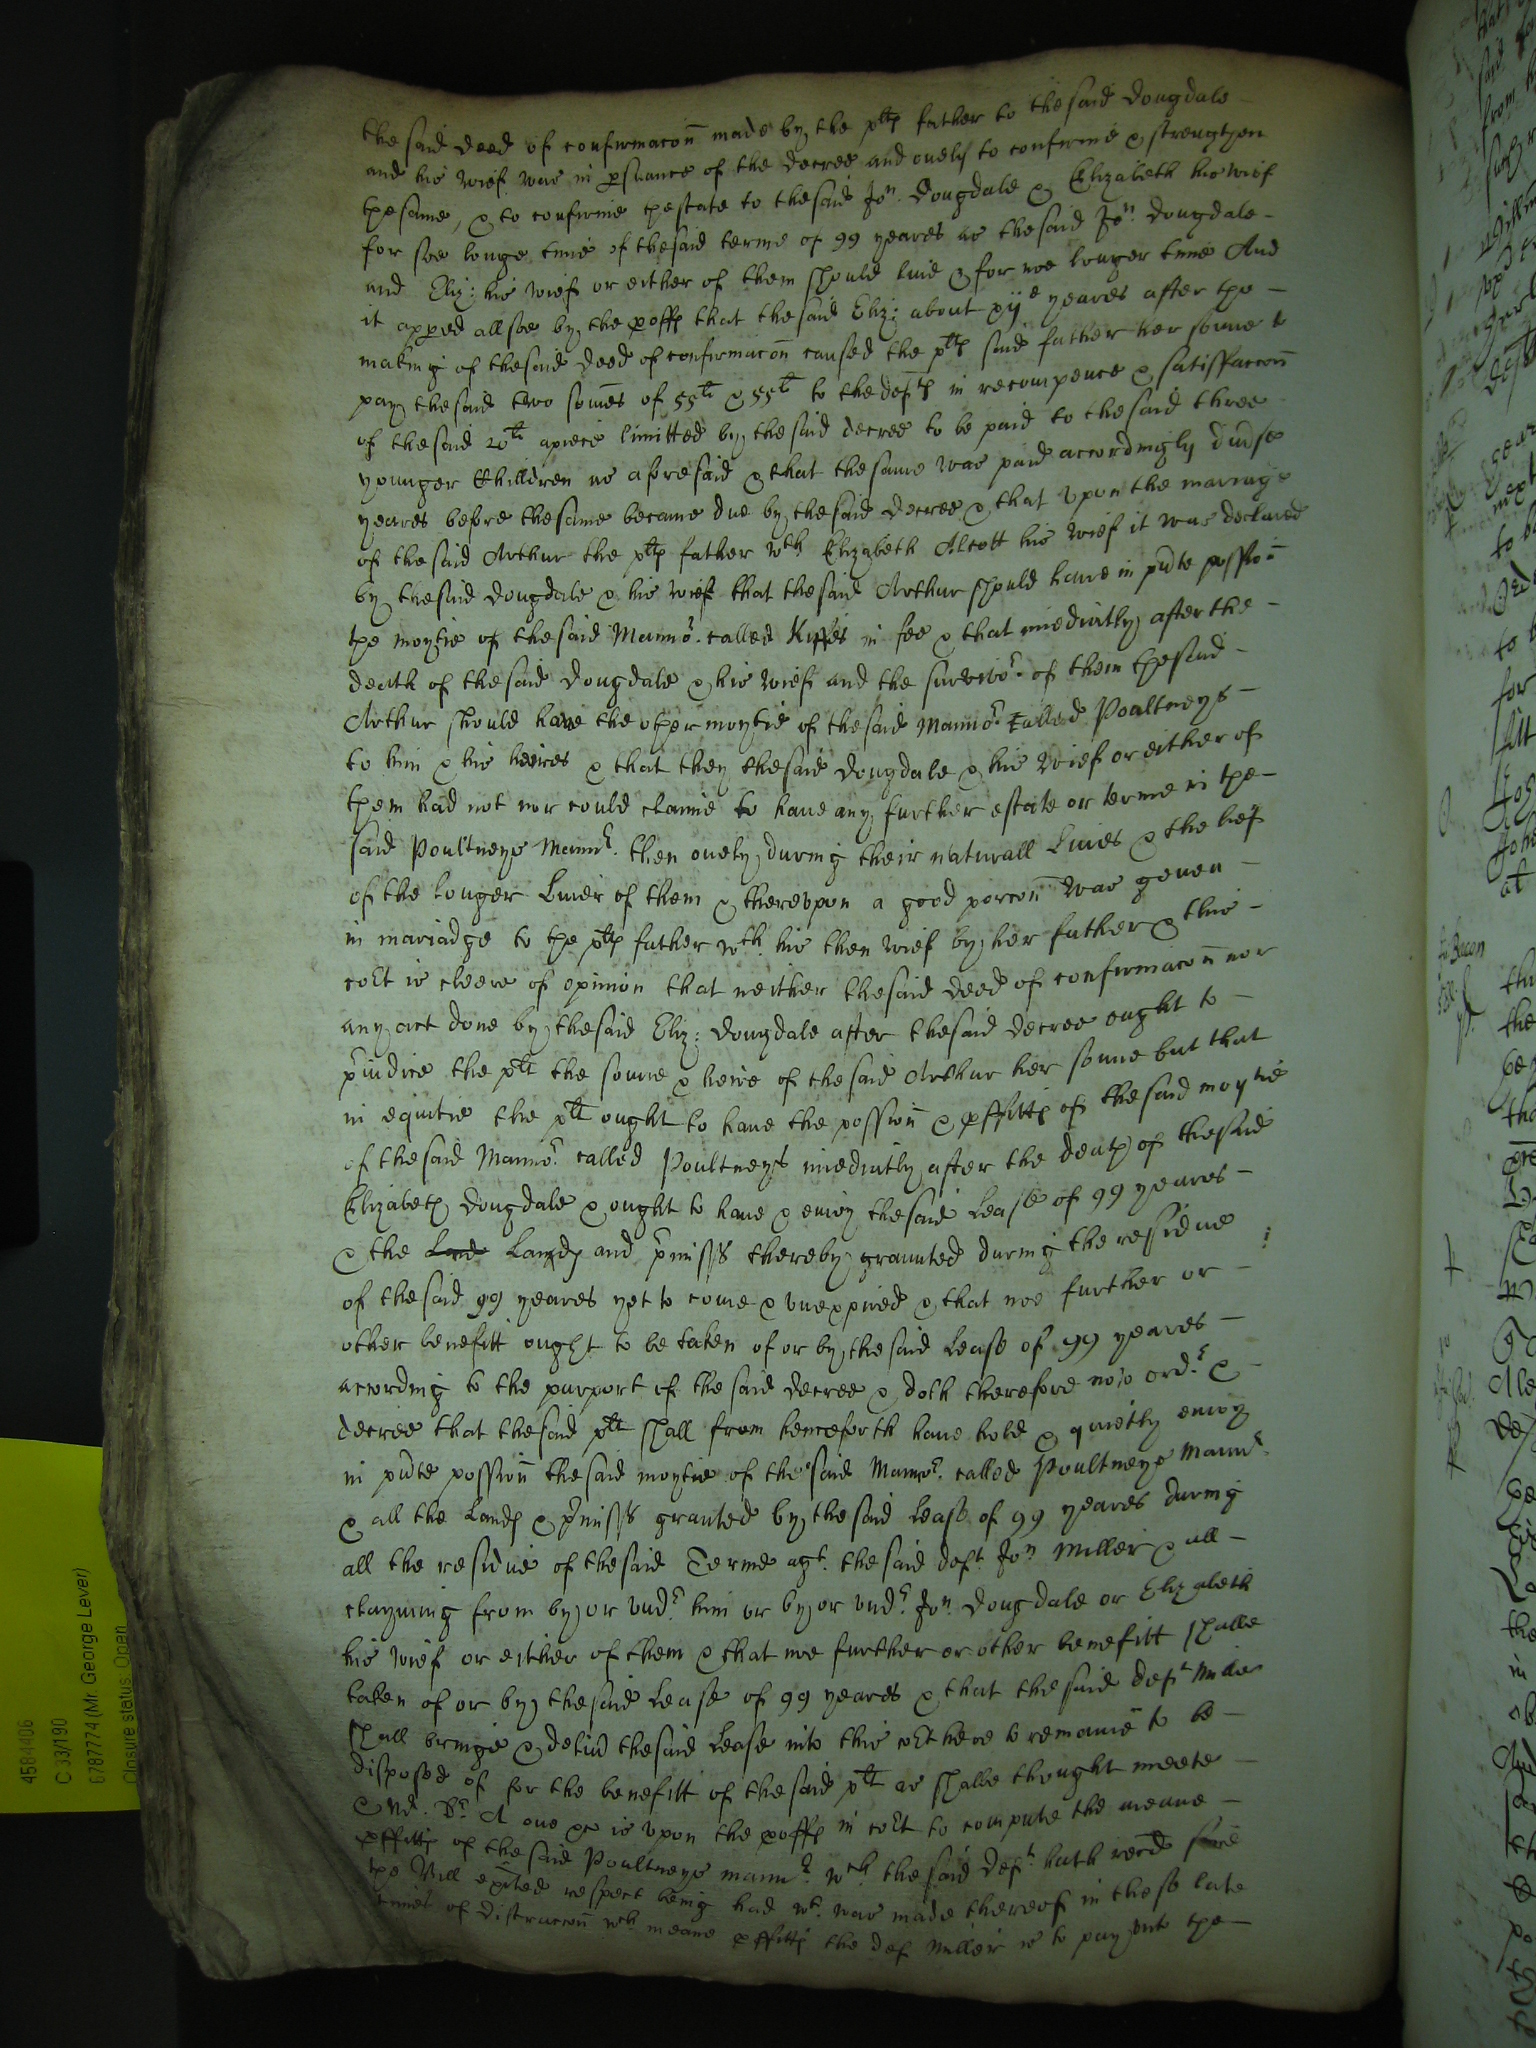 the said deed of confirmacon made by the plts father to the said Dougdale
and his wief was in psuance of the decree and onely to confirme & strengthen
the same, & to confirme thestate to the said Jon. Dougdale & Elizabeth his wief
for soe longe time of the said terme of 99 yeares as the said Jon. Dougdale
and Eliz: his wief or either of them should live & for noe longer time And
it appeed allsoe by the proffs that the said Eliz: about xije yeares after the
making of the said deed of confirmacon caused the plts said father her sonne to
pay the said two somes of 55li & 55li to the defts in recompence & satisfaccon
of the said 20li apiece limitted by the said decree to be paid to the said three
younger Children as aforesaid & that the same was paid accordingly divse
yeares before the same became due by the said decree & that vpon the mariage
of the said Arthur the plts father wth Elizabeth Alcott his wief it was declared
by the said Dougdale & his wief that the said Arthur should have in psente possion
the moytie of the said Mannor. called in fee & that imediatly after the
death of the said Dougdale & his wief and the survivor. of them the said
Arthur should have the other moytie of the said Mannor. called Poultneys
to him & his heires & that they the said Dougdale & his wief or either of
them had not nor could clame to have any further estate or terme in the
said Poultneys Mannr. then onely during their naturall Lives & the lief
of the longer Liver of them & therevpon a good porcon was geven
in mariadge to the plts father wth. his then wief by her father & this
cort is cleere of opinion that neither the said deed of confirmacon nor
any act done by the said Eliz: Dougdale after the said decree ought to
piudice the plt the sonne & heire of the said Arthur her sonne but that
in equitie the plt ought to have the possion & pffitts of the said moytie
of the said Mannor. called Poultneys imediatly after the death of the said
Elizabeth Dougdale & ought to have & enioy the said Lease of 99 yeares
& the Lands and pmisses thereby graunted during the residue
of the said 99 yeares yet to come & vnexpired & that noe further or
other benefitt ought to be taken of or by the said Lease of 99 yeares
according to the purport of the said decree & doth therefore now ordr &
decree that the said plt shall from henceforth have hold & quietly enioy
in psente possion the said moytie of the said Mannor. called Poultneys Mannr.
& all the Lands & pmisses granted by the said Lease of 99 yeares during
all the residue of the said Terme agt. the said deft. Jon Miller & all
clayming from by or vndr. him or by or vndr. Jon. Dougdale or Elizabeth
his wief or either of them & that noe further or other benefitt shalbe
taken of or by the said Lease of 99 yeares & that the said deft Miller
shall bringe & deliu the said Lease into this cort here to remaine to be
disposed of for the benefitt of the said plt as shalbe thought meete
& Mr. A one &c is vpon the proffs in cort to compute the meane
pffitts of the said Poultneys mannr. wch. the said deft. hath recd since
the Bill exited respect being had wt. was made thereof in these late
times of distraccon wch meane pffitts the def Miller is to pay vnto the
4584406
C 33/190
6787774 (Mr. George Lever)
Closure status Open